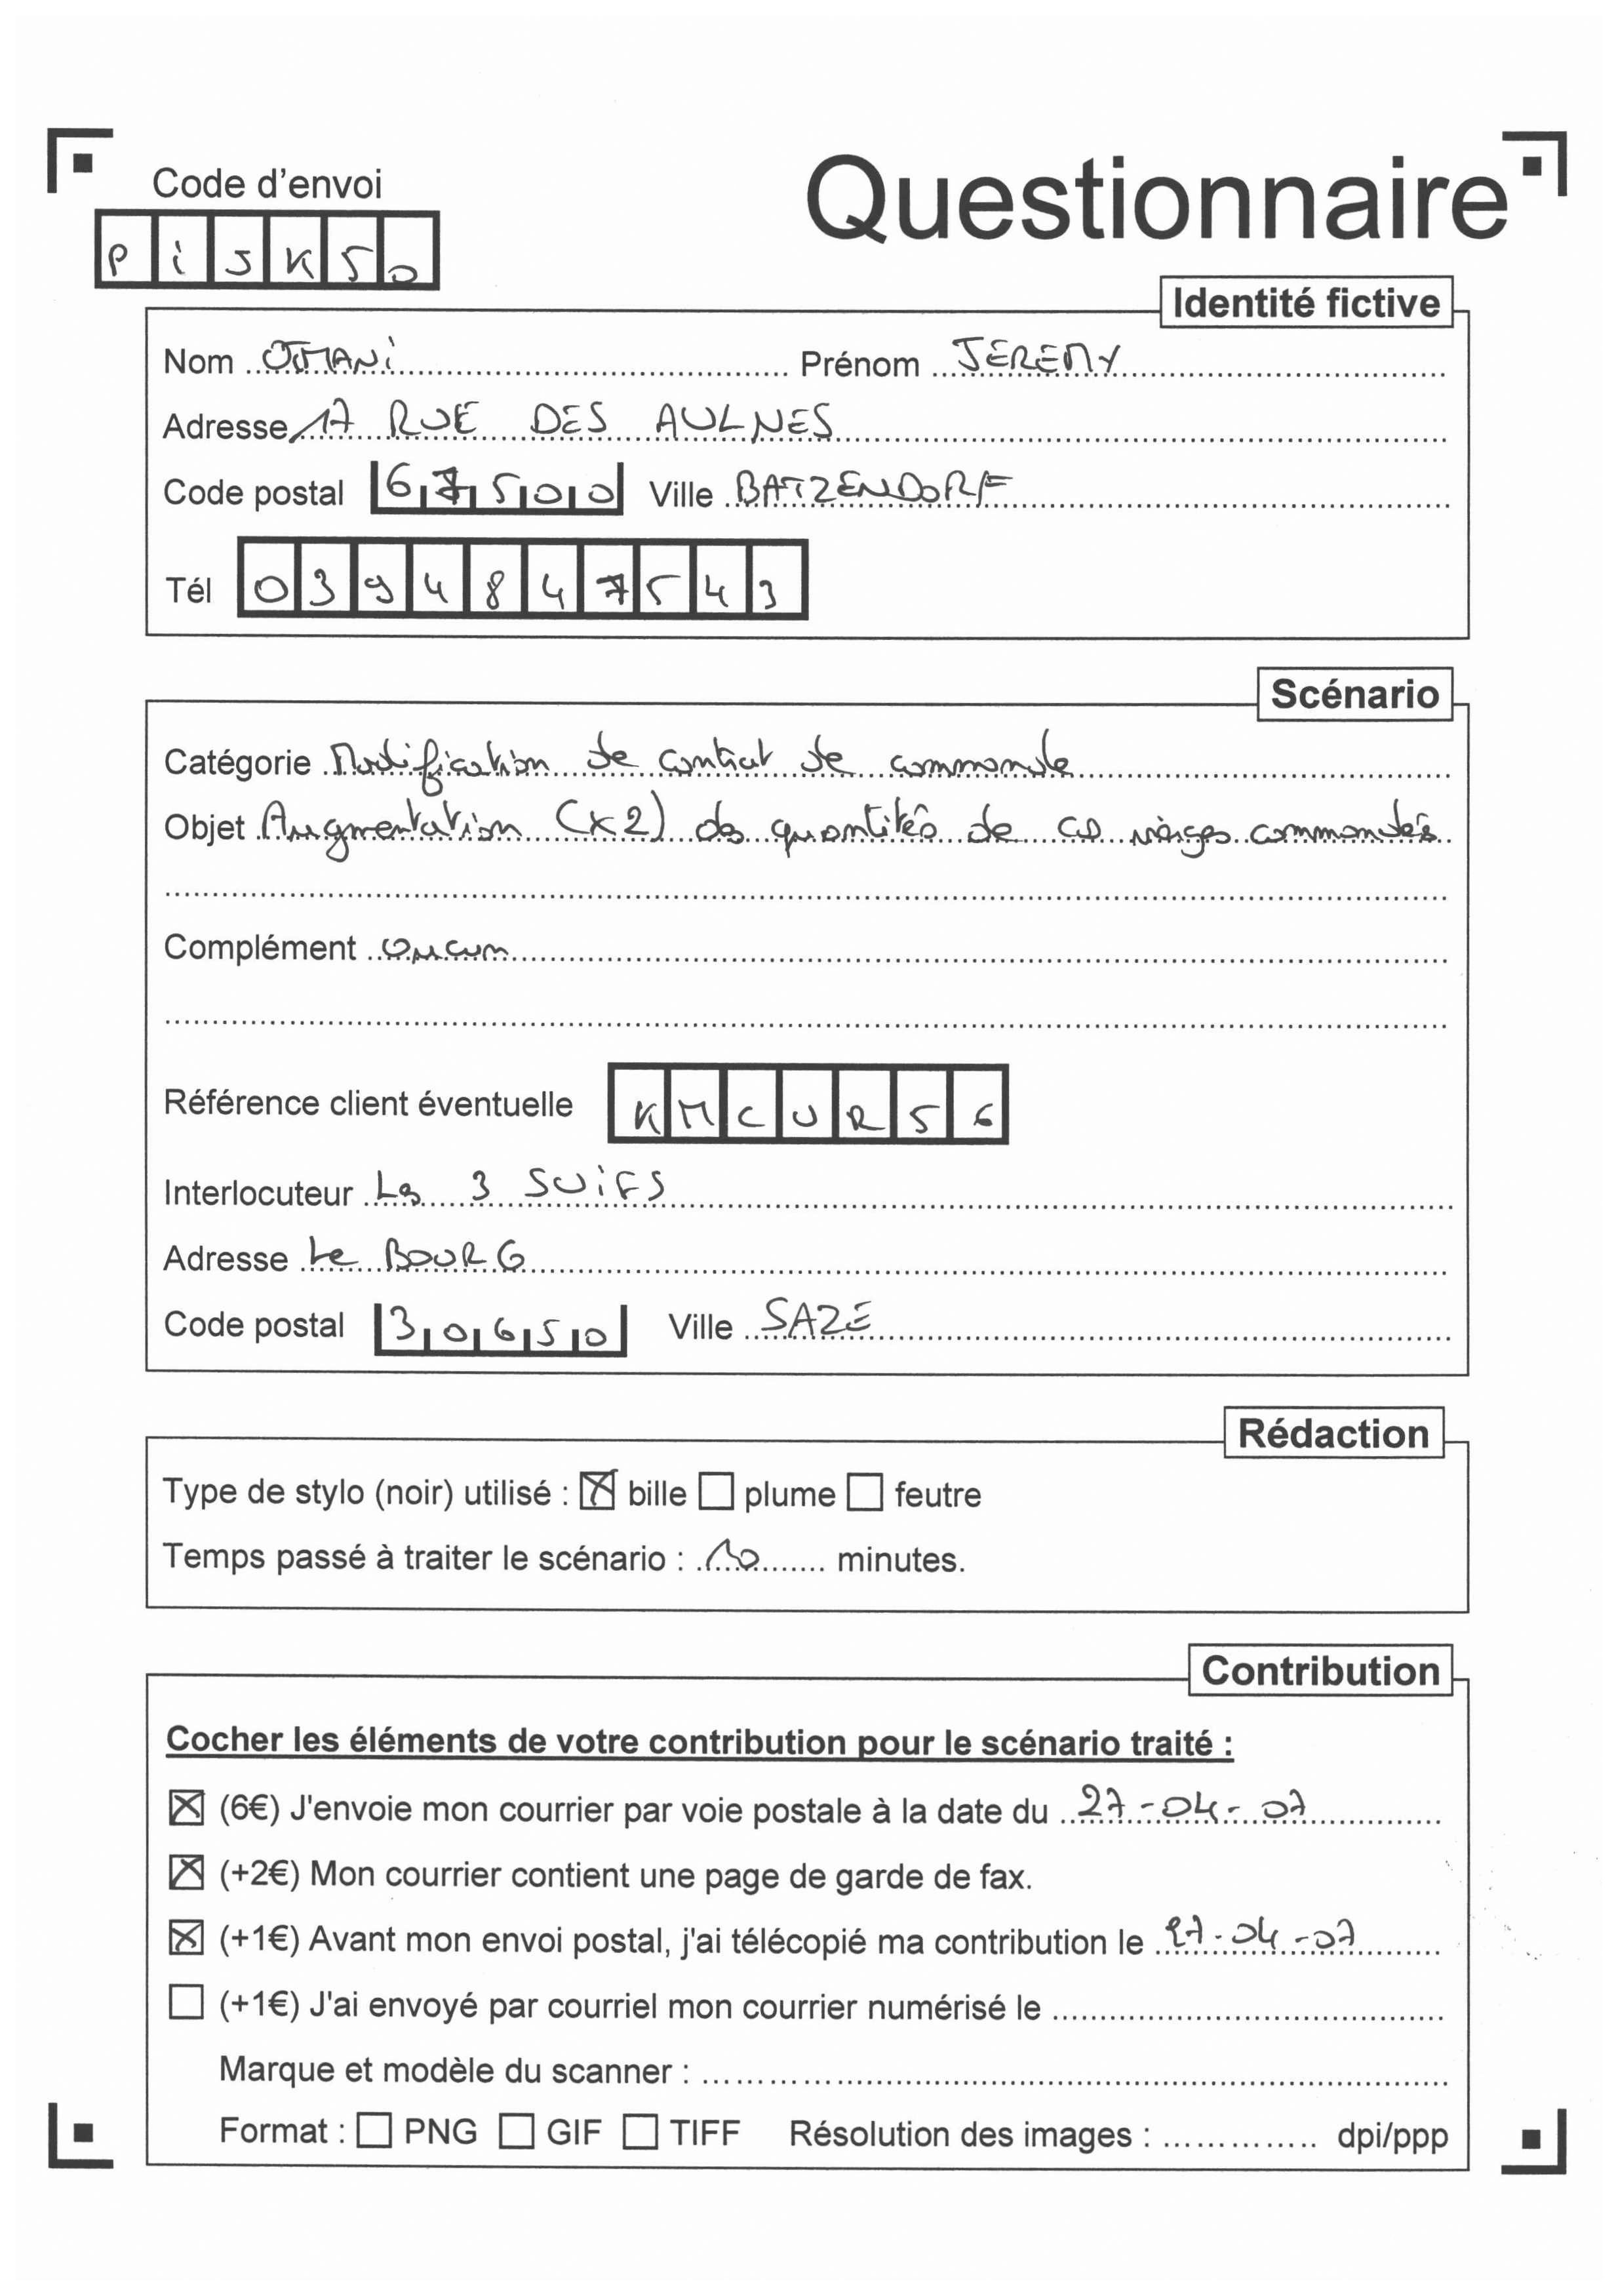 Code d'envoi
Questionnaire
P i J K 5 0
Identité fictive
Nom OTMANi Prénom JEREMY
Adresse 17 RUE DES AULNES
Code postal 67500 Ville BATZENDORF
Tél 0394847543
Scénario
Catégorie Modification de contrat de commande
Objet Augmentation (x2) des quantités de CD vierges commandés
Complément aucun
Référence client éventuelle KMCUR56
Interlocuteur Les 3 SUiFS
Adresse Le BOURG
Code postal 30650 Ville SAZE
Rédaction
Type de stylo (noir) utilisé : ☒ bille ☐ plume ☐ feutre
Temps passé à traiter le scénario : 10 minutes.
Contribution
Cocher les éléments de votre contribution pour le scénario traité :
☒ (6€) J'envoie mon courrier par voie postale à la date du 27-04-07
☒ (+2€) Mon courrier contient une page de garde de fax.
☒ (+1€) Avant mon envoi postal, j'ai télécopié ma contribution le 27-04-07
☐ (+1€) J'ai envoyé par courriel mon courrier numérisé le
Marque et modèle du scanner :
Format : ☐ PNG ☐ GIF ☐ TIFF Résolution des images : dpi/ppp